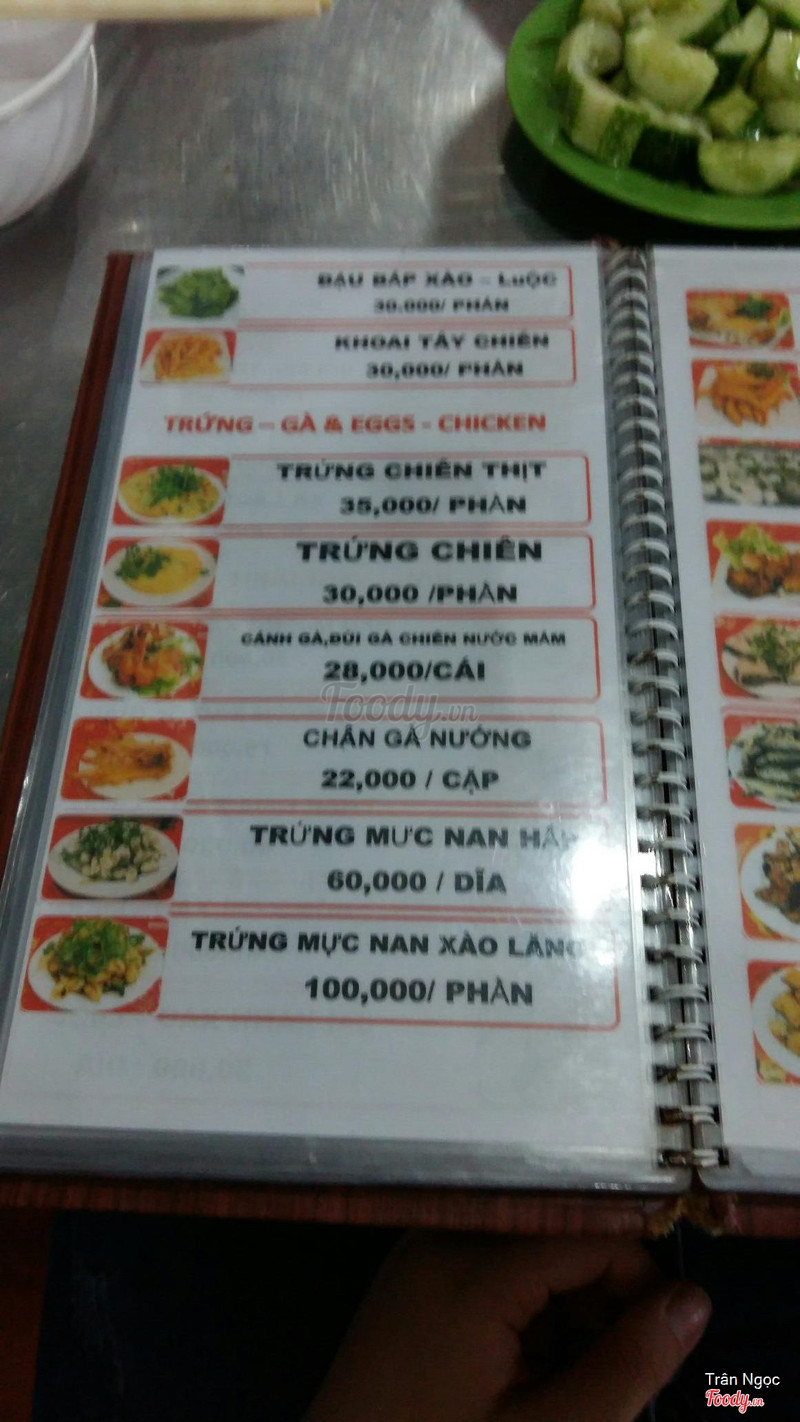 ĐẬU BẮP XÀO – LuỘC
30.000/ PHẦN
KHOAI TÂY CHIÊN
30,000/ PHẦN
TRỨNG – GÀ & EGGS - CHICKEN
TRỨNG CHIÊN THỊT
35,000/ PHẦN
TRỨNG CHIÊN
30,000 /PHẦN
CÁNH GÀ,ĐÙI GÀ CHIÊN NƯỚC MẮM
28,000/CÁI
Foody.vn
CHÂN GÀ NƯỚNG
22,000 / CẶP
TRỨNG MƯC NAN HẤP
60,000 / DĨA
TRỨNG MỰC NAN XÀO LĂNG
100,000/ PHẦN
Trân Ngọc
Foody.vn